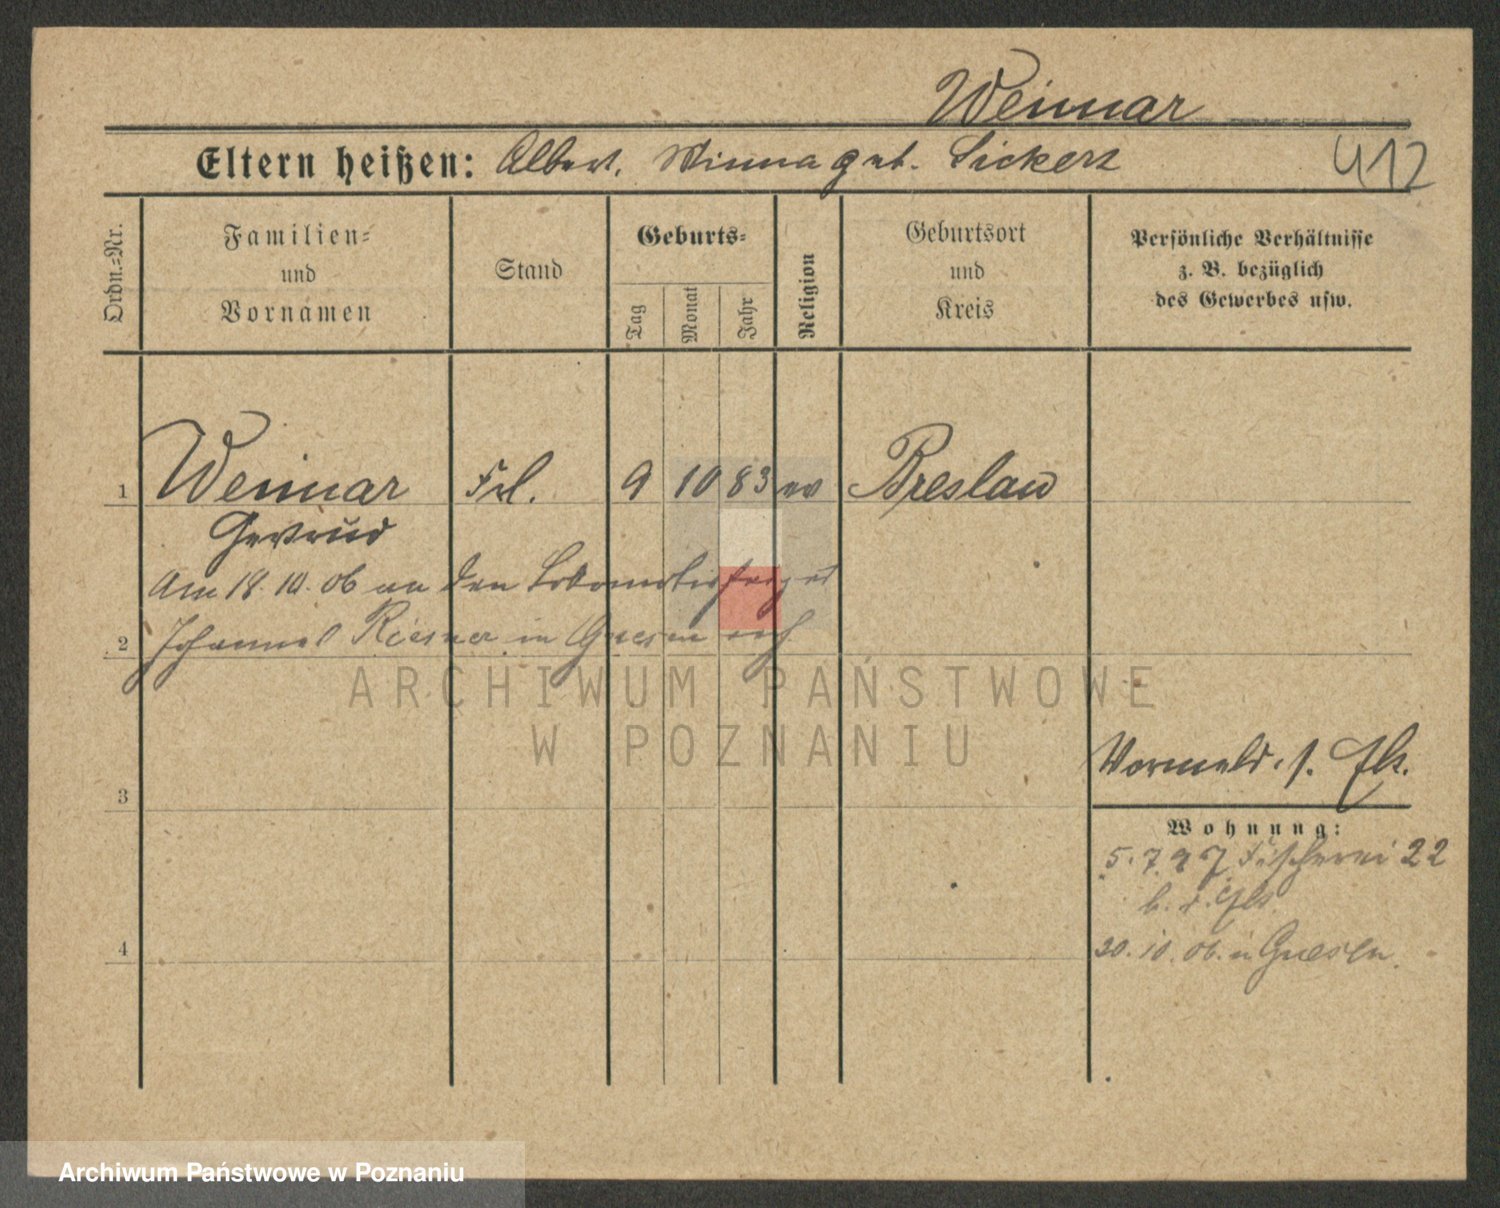 Weimar
Eltern heißen: Albert, Minna geb. Sickert
412
Ordn.=Nr.
Familien=
und
Vornamen
Stand
Geburts=
Tag
Monat
Jahr
Religion
Geburtsort
und
Kreis
Persönliche Verhältnisse
z. B. bezüglich
des Gewerbes usw.
1 Weimar Frl. 9 10 83 ev Breslau
Gertrud
Am 18.10.06 an den
2 Johannes Riesner in Gnesen
ARCHIWUM PAŃSTWOWE
W POZNANIU
Vormeld. s.
3
Wohnung:
5.7.97 Fischerei 22
b. d.
4
20.10.06. n Gnesen.
Archiwum Państwowe w Poznaniu